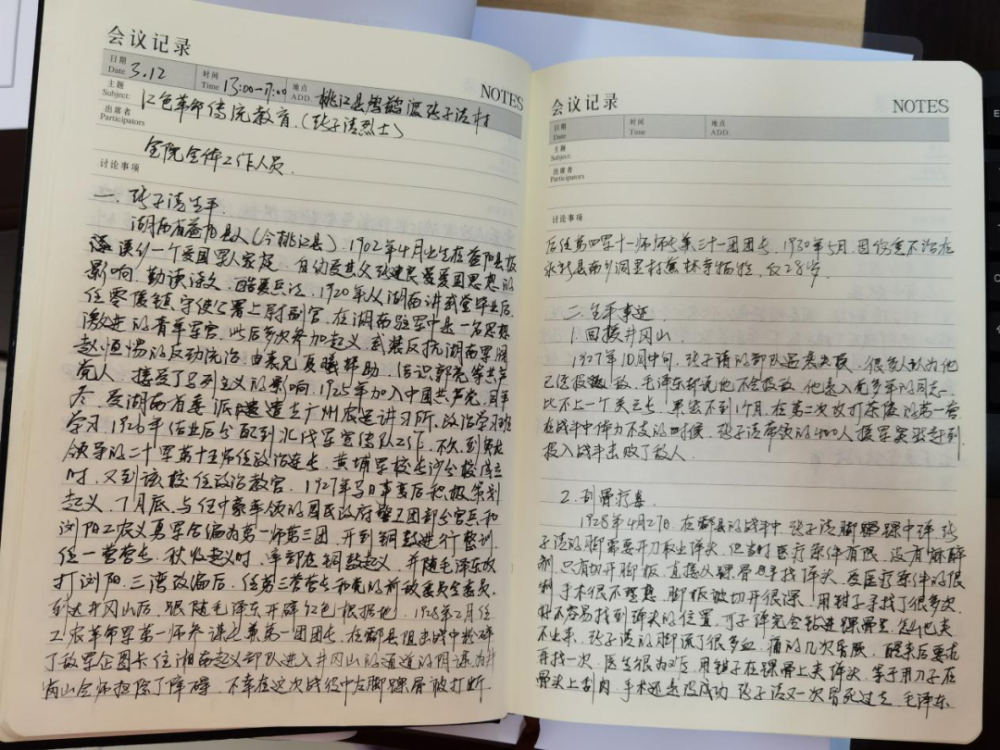 会议记录
日期 Date 3.12 时间 Time 13:00-17:00 地点 ADD. 桃江县 张子清村 NOTES
主题 Subject: 红色革命传统教育.(张子清烈士)
出席者 Participators
全院全体工作人员.
讨论事项
一. 张子清生平.
湖南省益阳县人(今桃江县).1902年4月出生在益阳县板
溪乡一个爱国军人家庭. 自幼受其父张建良爱国思想的
影响. 勤读诗文. 酷爱兵法. 1920年从湖南讲武堂毕业后
任零陵镇守使公署上尉副官. 在湖南驻军中是一名思想
激进的青年军官. 此后多次参加起义. 武装反抗湖南军阀
赵恒惕的反动统治. 由表兄夏曦帮助. 结识郭亮等共产
党人. 接受了马列主义的影响. 1925年加入中国共产党. 同年
冬. 受湖南省委派遣去广州农运讲习所. 政治学习班
学习. 1926年结业后分配到北伐军宣传队工作. 不久. 到贺龙
领导的二十军第十五师任政治连长. 黄埔军校长沙分校成立
时. 又到该校任政治教官. 1927年马日事变后积极策划
起义. 7月底. 与任中豪率领的国民政府警卫团部分官兵和
浏阳工农义勇军合编为第一师第三团. 开到铜鼓进行整训
任一营营长. 秋收起义时. 率部在铜鼓起义. 并随毛泽东攻
打浏阳. 三湾改编后. 任第三营营长和党的前敌委员会委员.
到达井冈山后. 跟随毛泽东开辟红色根据地. 1928年2月任
工农革命军第一师参谋长兼第一团团长. 在酃县阻击战中粉碎
了敌军企图卡住湘南起义部队进入井冈山的通道的阴谋. 为井
冈山会师扫除了障碍. 不幸在这次战役中左脚踝骨被打断
会议记录 NOTES
日期 Date 时间 Time 地点 ADD.
主题 Subject:
出席者 Participators
讨论事项
后任第四军十一师师长兼三十一团团长. 1930年5月. 因伤重不治在
永新县南乡洞里村蕉林寺牺牲. 仅28岁.
二. 生平事迹.
1. 回援井冈山
1927年10月中旬. 张子清的部队遇袭失散. 很多人认为他
已经投敌. 毛泽东却说他不会投敌. 他是入党多年的同志.
比不上一个关云长. 果然不到1个月. 在第二次攻打茶陵的第一营
在战斗中体力不支的时候. 张子清带领的400人援军突然赶到
投入战斗击败了敌人.
2. 刮骨疗毒
1928年4月27日. 在酃县的战斗中. 张子清脚踝中弹. 张
子清的脚需要开刀取出弹头. 但当时医疗条件有限. 没有麻醉
剂. 只有切开脚板. 直接从踝骨里寻找弹头. 受医疗条件的限
制. 手术很不理想. 脚板被切开很深. 用钳子寻找了很多次.
好不容易找到弹头的位置. 可子弹完全钻进踝骨里. 怎么也夹
不出来. 张子清的脚流了很多血. 痛的几次昏厥. 醒来后要求
再找一次. 医生很为难. 用钳子在踝骨上夹弹头. 等于用刀子在
骨头上刮肉. 手术还是没成功. 张子清又一次昏死过去. 毛泽东